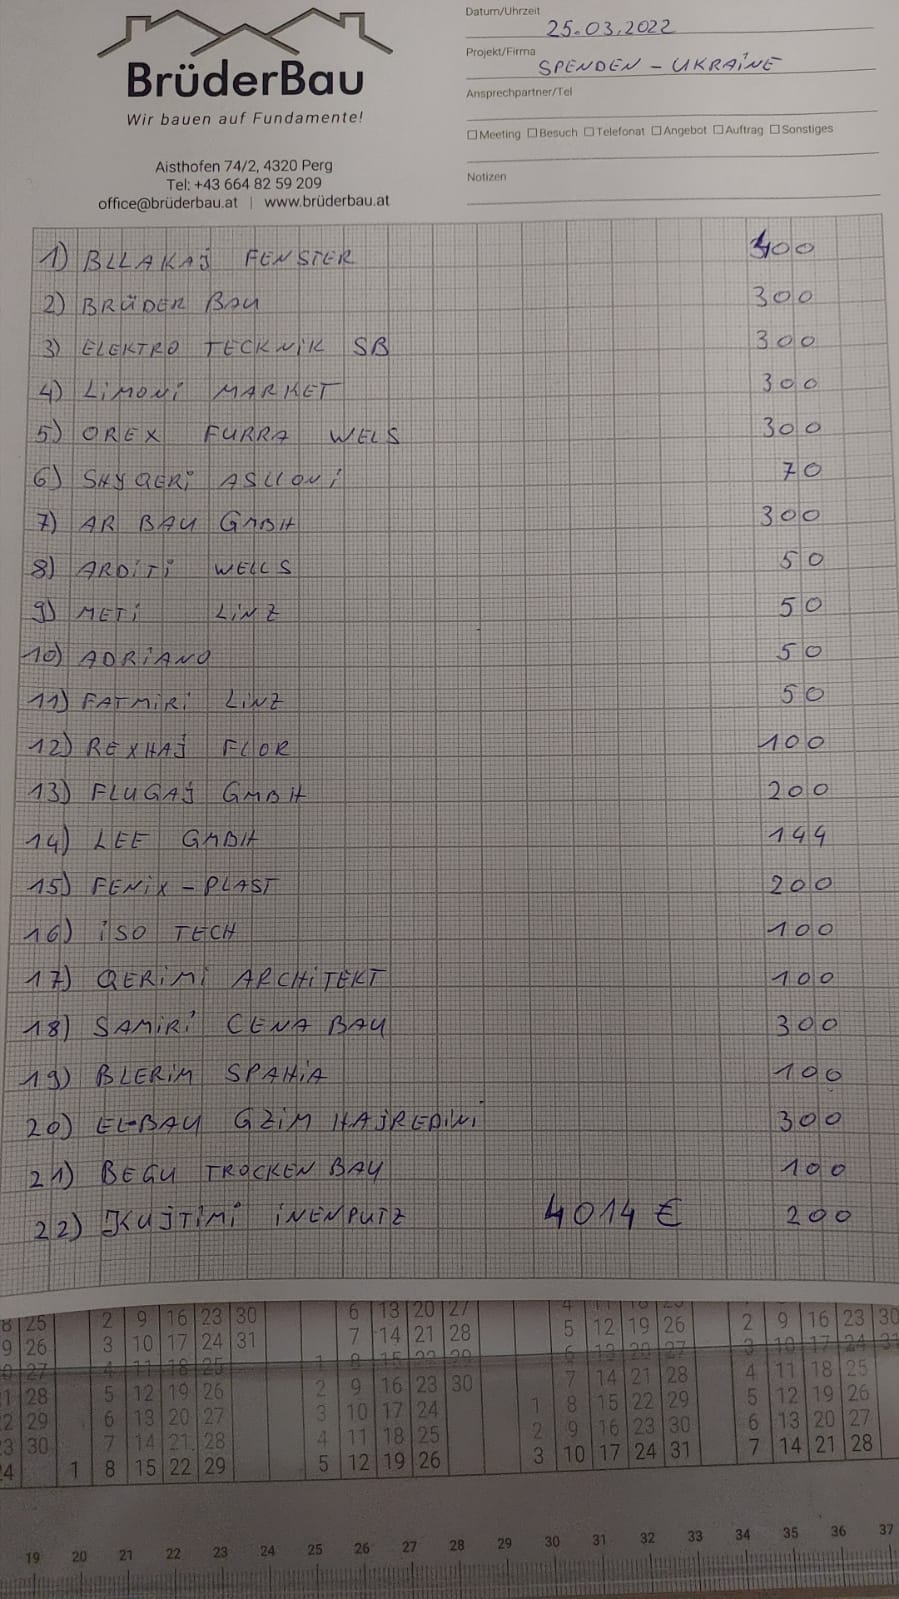 BrüderBau
Wir bauen auf Fundamente!
Aisthofen 74/2, 4320 Perg
Tel: +43 664 82 59 209
office@brüderbau.at | www.brüderbau.at
Datum/Uhrzeit 25.03.2022
Projekt/Firma SPENDEN - UKRAINE
Ansprechpartner/Tel
Meeting Besuch Telefonat Angebot Auftrag Sonstiges
Notizen
1) BLLAKAJ FENSTER 400
2) BRÜDER BAU 300
3) ELEKTRO TECKNIK SB 300
4) LIMONI MARKET 300
5) OREX FURRA WELS 300
6) SHYQERI ASLLONI 70
7) AR BAU GMBH 300
8) ARDITI WELLS 50
9) METI LINZ 50
10) ADRIANO 50
11) FATMIRI LINZ 50
12) REXHAJ FLOR 100
13) FLUGAJ GMBH 200
14) LEE GMBH 144
15) FENIX - PLAST 200
16) ISO TECH 100
17) QERIMI ARCHITEKT 100
18) SAMIRI CENA BAU 300
19) BLERIM SPAHIA 100
20) EL-BAU GZIM HAJREDINI 300
21) BEGU TROCKEN BAU 100
22) KUJTIMI INENPUTZ 4014 € 200
25 2 9 16 23 30 6 13 20 27 2 9 16 23 30
9 26 3 10 17 24 31 7 14 21 28 5 12 19 26 3 10 17 24 31
27 4 11 18 25 1 8 15 22 29 6 13 20 27
28 5 12 19 26 2 9 16 23 30 7 14 21 28 4 11 18 25
29 6 13 20 27 3 10 17 24 1 8 15 22 29 5 12 19 26
30 7 14 21 28 4 11 18 25 2 9 16 23 30 6 13 20 27
1 8 15 22 29 5 12 19 26 3 10 17 24 31 7 14 21 28
19 20 21 22 23 24 25 26 27 28 29 30 31 32 33 34 35 36 37